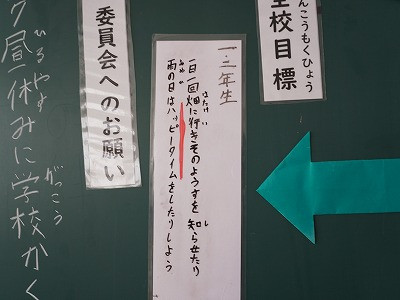 んこうもくひょう
全校目標
一・二年生
はたけ い
一日一回畑に行きそのようすを知らせたり
し
雨の日はハッピータイムをしたりしよう
委員会へのお願い
ひるやす
ク昼休みに学校かく
がっこう